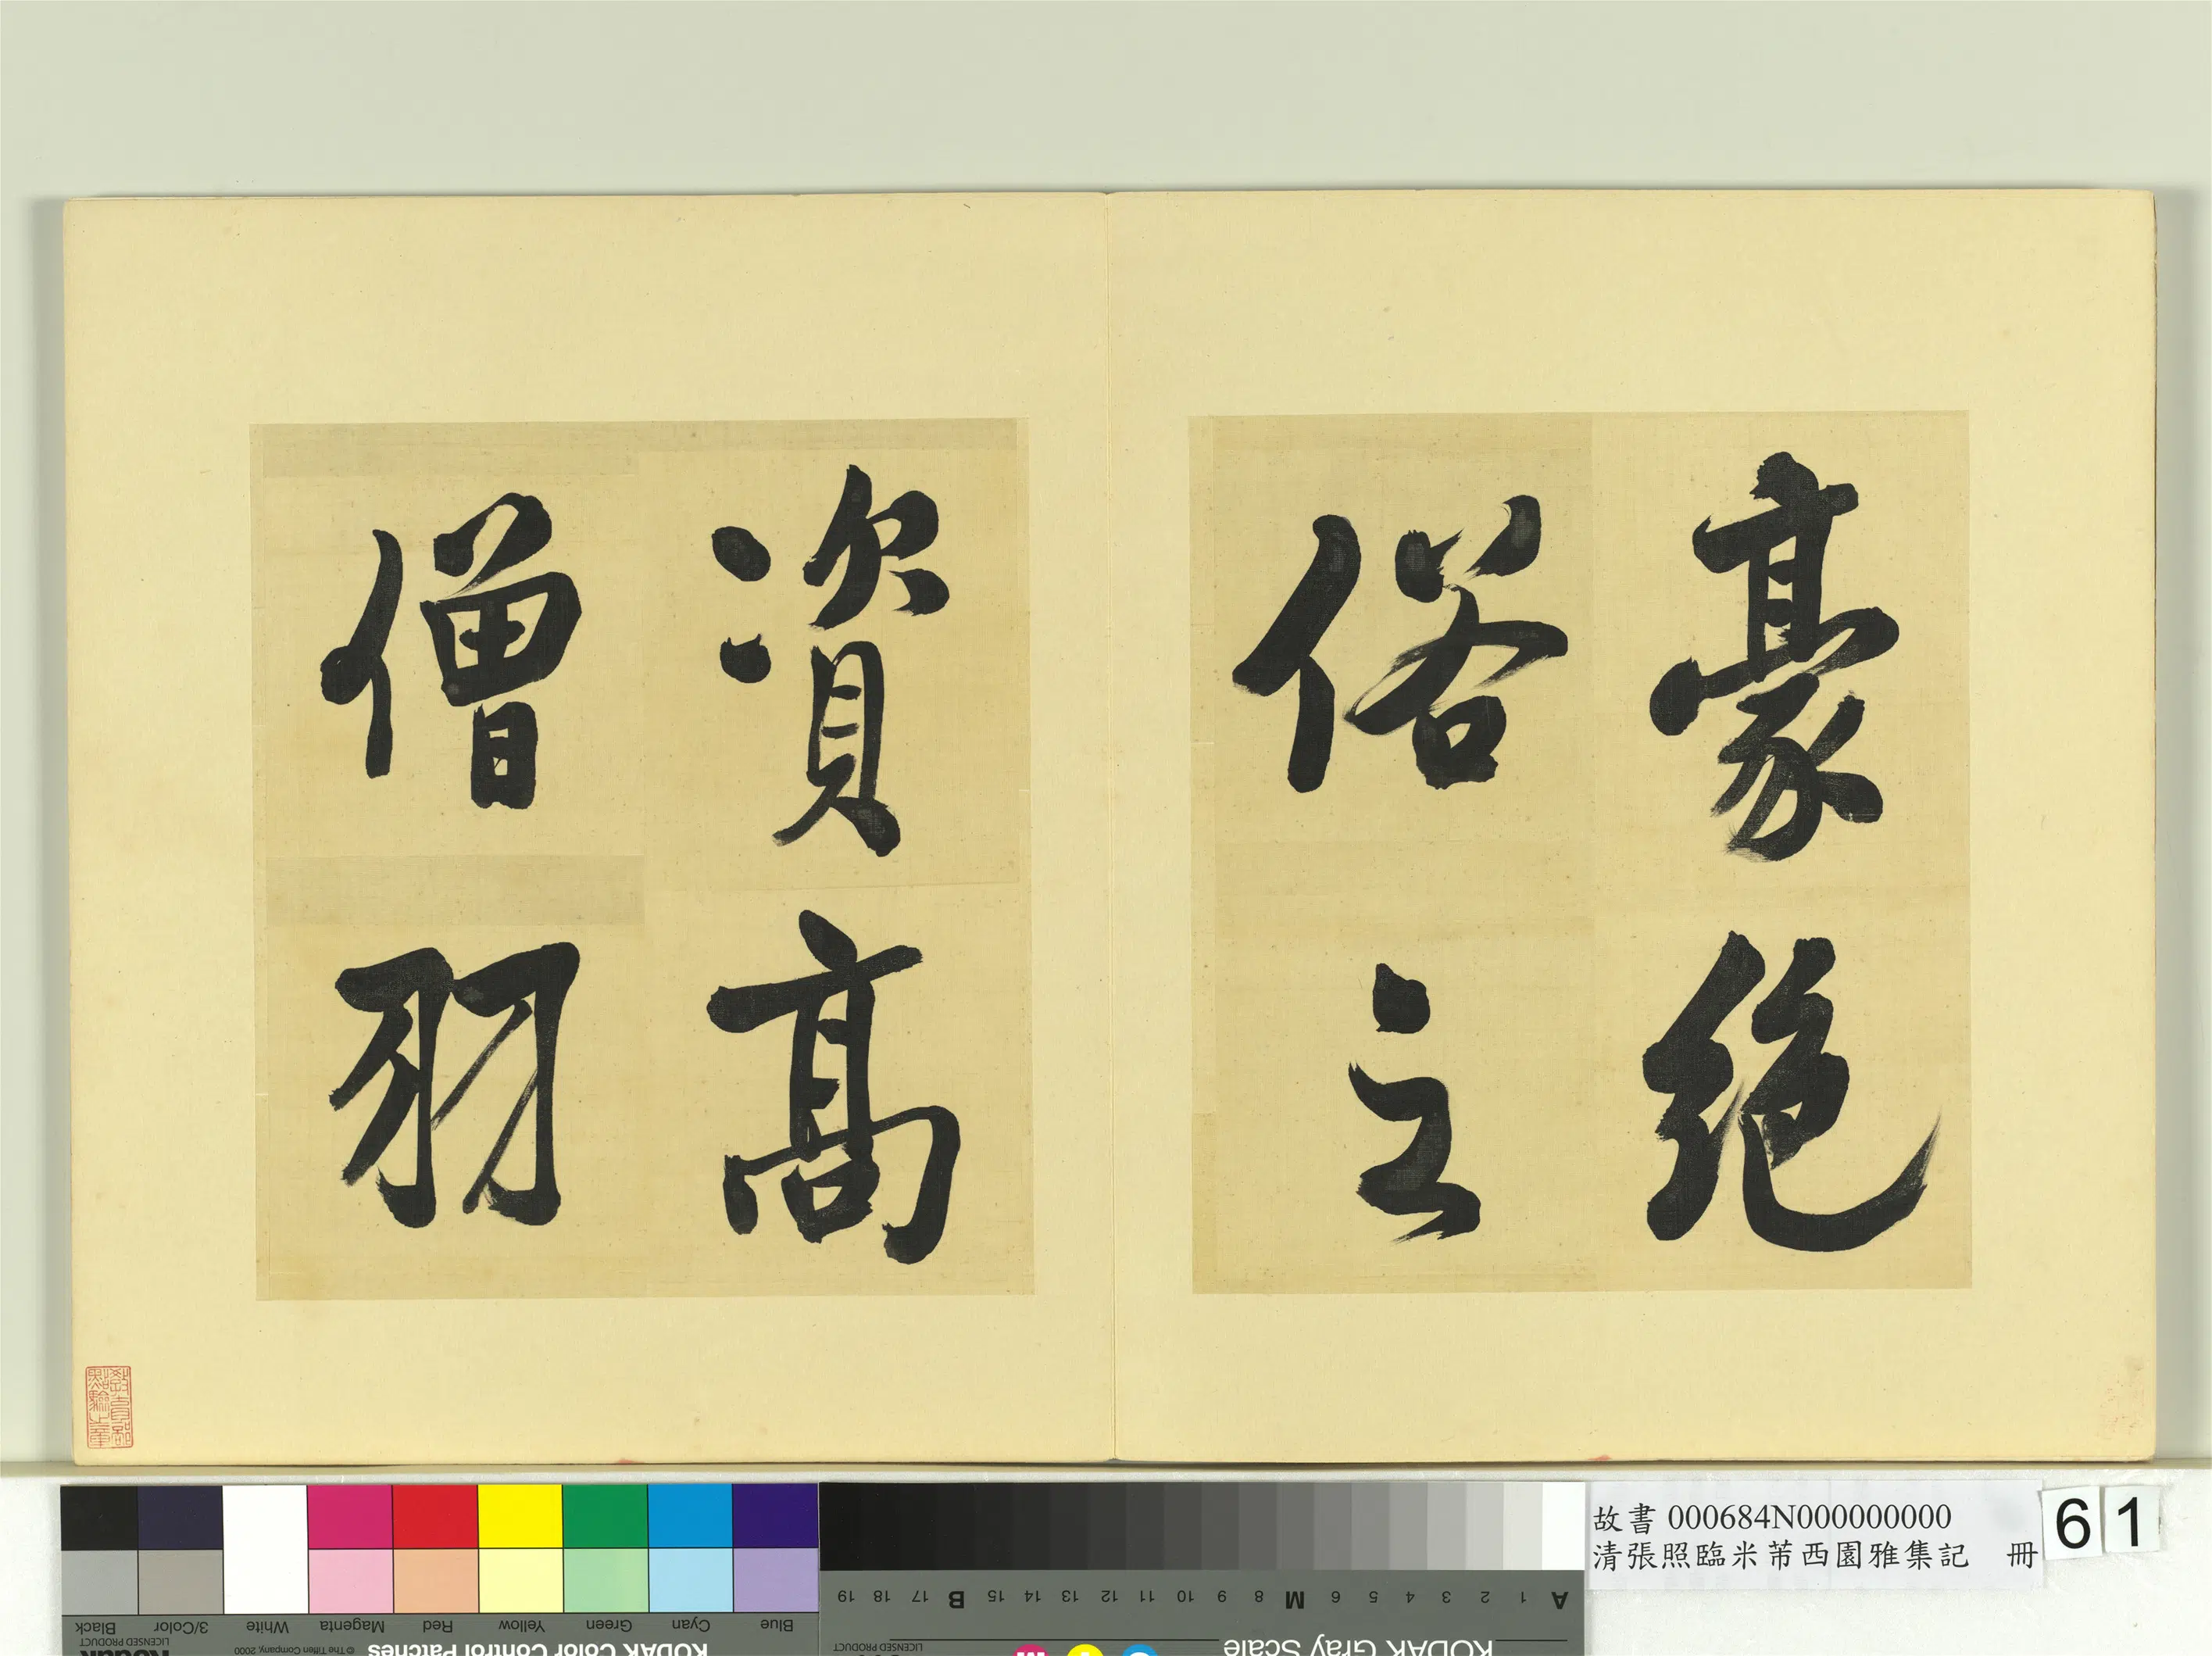 豪絕
俗之
資高
僧羽
教育部
點驗之章
故書 000684N000000000
清張照臨米芾西園雅集記 冊
61
Black
3/Color
White
Magenta
Red
Yellow
Green
Cyan
Blue
KODAK Color Control Patches
© The Tiffen Company, 2000
Kodak
LICENSED PRODUCT
KODAK Gray Scale
LICENSED PRODUCT
A 1 2 3 4 5 6 M 8 9 10 11 12 13 14 15 B 17 18 19